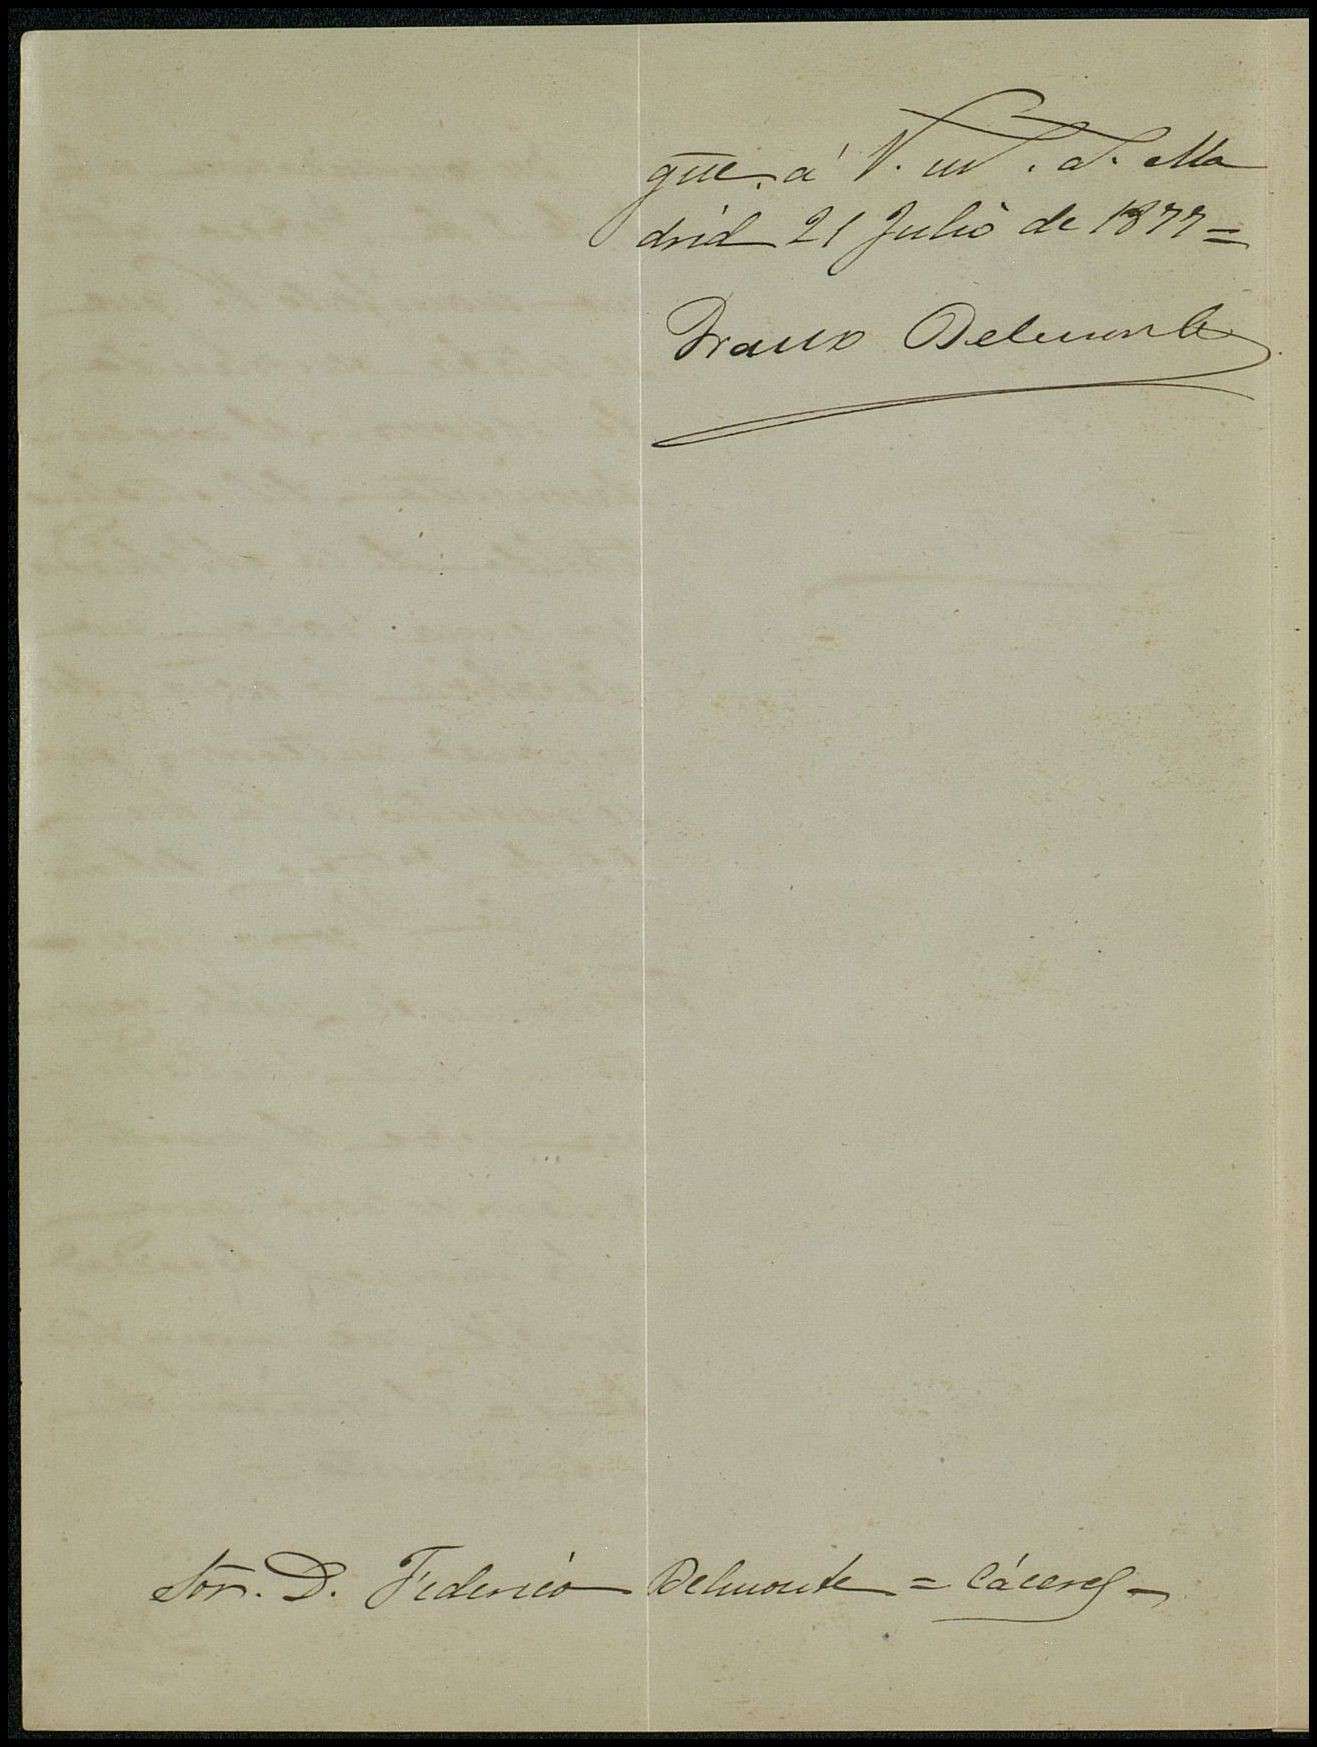 gue. á V. m. a. Ma
drid 21 Julio de 1877=
Franco Belmonte
Sor. D. Federico Belmonte = Cáceres-